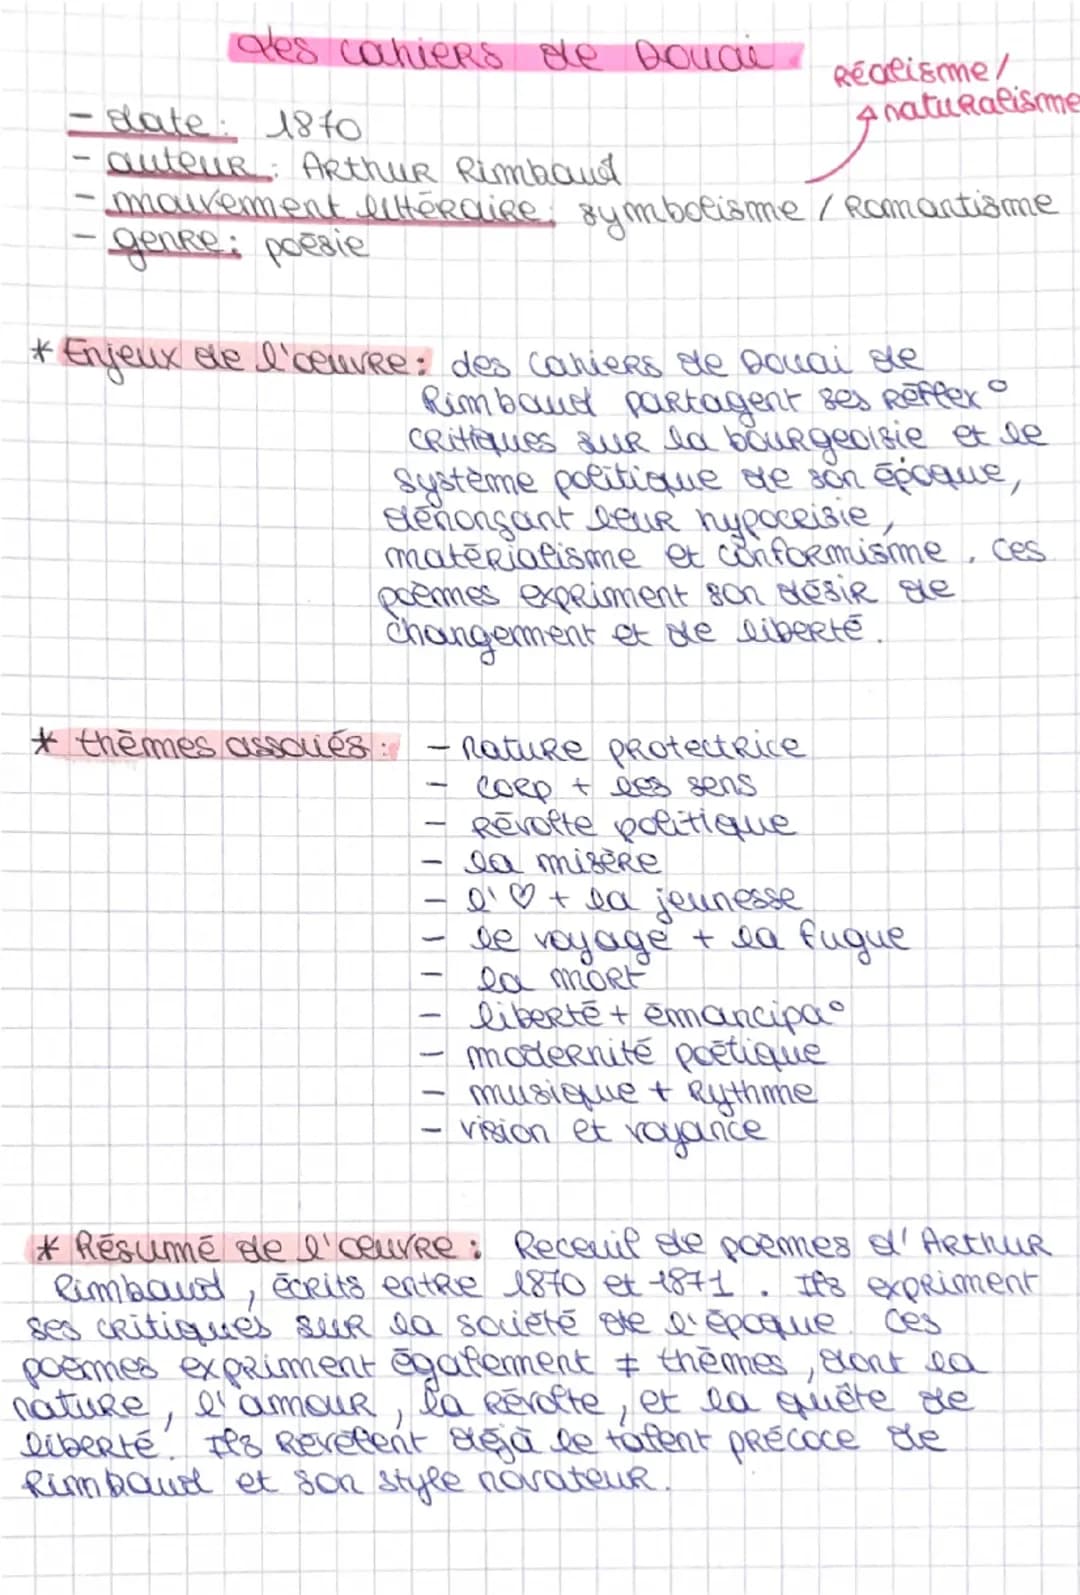 des cahiers de Douai
Réalisme/
naturalisme
- date : 1870
- auteur : Arthur Rimbaud
- mouvement littéraire : symbolisme / Romantisme
- genre : poésie
* Enjeux de l'œuvre : des cahiers de Douai de
Rimbaud partagent ses réflex°
critiques sur la bourgeoisie et le
système politique de son époque,
dénonçant leur hypocrisie,
matérialisme et conformisme. Ces
poèmes expriment son désir de
changement et de liberté.
* thèmes associés : - nature protectrice
- corp + les sens
- Révolte politique
- la misère
- l'♡ + la jeunesse
- le voyage + la fugue
- la mort
- liberté + émancipa°
- modernité poétique
- musique + Rythme
- vision et voyance
* Résumé de l'œuvre : Receuil de poèmes d'Arthur
Rimbaud, écrits entre 1870 et 1871. Ils expriment
ses critiques sur la société de l'époque. Ces
poèmes expriment également ≠ thèmes, dont la
nature, l'amour, la révolte, et la quête de
liberté. Ils Révèlent déjà le talent précoce de
Rimbaud et son style novateur.